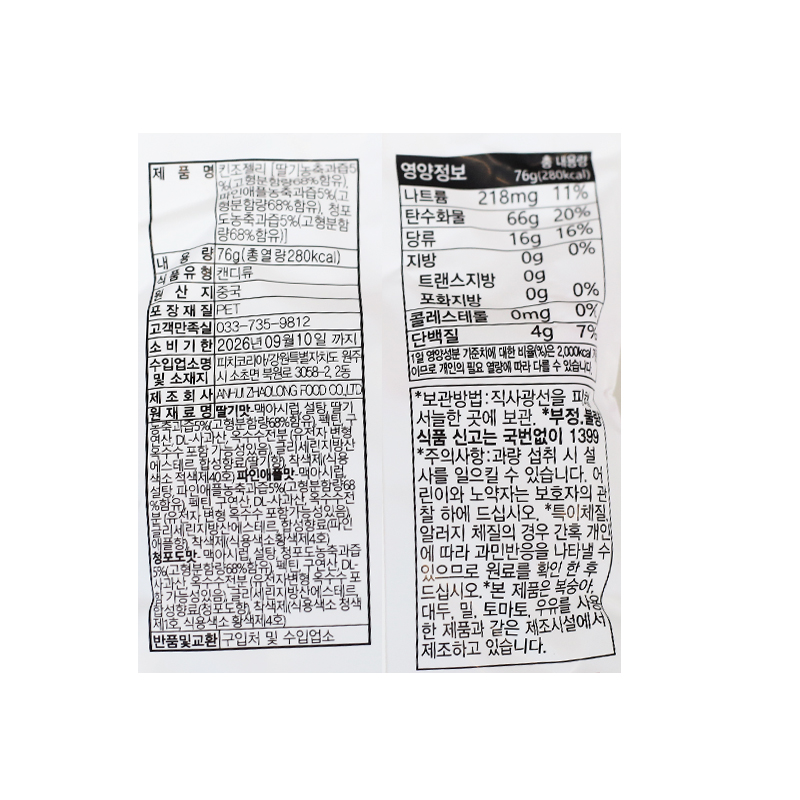 제 품 명 킨조젤리 [딸기농축과즙5
%(고형분함량68%함유),
파인애플농축과즙5%(고
형분함량68%함유), 청포
도농축과즙5%(고형분함
량68%함유)]
내 용 량 76g(총열량280kcal)
식품유형 캔디류
원 산 지 중국
포장재질 PET
고객만족실 033-735-9812
소비기한 2026년09월10일 까지
수입업소명 및 소재지 피치코리아/강원특별자치도 원주
시 소초면 북원로 3068-2, 2동
제조회사 ANHUI ZHAOLONG FOOD CO.,LTD
원재료명 딸기맛-맥아시럽, 설탕, 딸기
농축과즙5%(고형분함량68%함유), 펙틴, 구
연산, DL-사과산, 옥수수전분 (유전자 변형
옥수수 포함 가능성있음), 글리세린지방산
에스테르, 합성향료(딸기향), 착색제(식용
색소 적색제40호) 파인애플맛-맥아시럽,
설탕, 파인애플농축과즙5%(고형분함량68
%함유), 펙틴, 구연산, DL-사과산, 옥수수전
분 (유전자 변형 옥수수 포함가능성있음),
글리세린지방산에스테르, 합성향료(파인
애플향), 착색제(식용색소황색제4호)
청포도맛- 맥아시럽, 설탕, 청포도농축과즙
5%(고형분함량68%함유), 펙틴, 구연산, DL-
사과산, 옥수수전분 (유전자변형 옥수수 포
함 가능성있음), 글리세린지방산에스테르,
합성향료(청포도향), 착색제(식용색소 청색
제1호, 식용색소 황색제4호)
반품및교환 구입처 및 수입업소
영양정보 총 내용량
76g(280kcal)
나트륨 218mg 11%
탄수화물 66g 20%
당류 16g 16%
지방 0g 0%
트랜스지방 0g
포화지방 0g 0%
콜레스테롤 0mg 0%
단백질 4g 7%
1일 영양성분 기준치에 대한 비율(%)은 2,000kcal 기
이므로 개인의 필요 열량에 따라 다를 수 있습니다
*보관방법:직사광선을 피
서늘한 곳에 보관. *부정.불량
식품 신고는 국번없이 1399
*주의사항:과량 섭취 시 설
사를 일으킬 수 있습니다. 어
린이와 노약자는 보호자의 관
찰 하에 드십시오. *특이체질,
알러지 체질의 경우 간혹 개인
에 따라 과민반응을 나타낼 수
있으므로 원료를 확인 한 후
드십시오.*본 제품은 복숭아,
대두, 밀, 토마토, 우유를 사용
한 제품과 같은 제조시설에서
제조하고 있습니다.